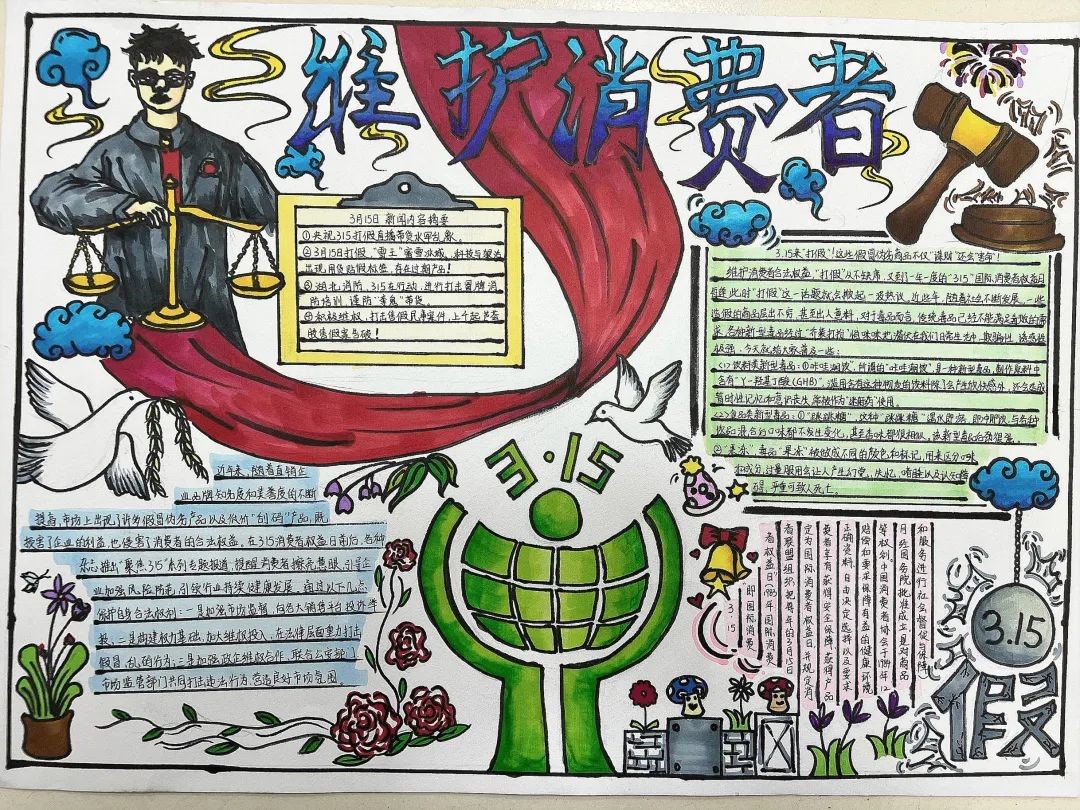 维护消费者
3月15日 新闻内容摘要
①央视315打假直播带货水军乱象。
②3月15日打假,"雪王"蜜雪冰城
出现用货贴假标签,存在过期产品!
③湖北消防,315在行动,进行打击冒牌消
防培训,谨防"李鬼"带货。
④积极维权,打击售假民事案件,上千起
售假
3.15
3.15来"打假"!这些假冒伪劣商品不仅"谋财"还会"害命"!
维护消费者合法权益,"打假"从不缺席,又到了一年一度的"3.15"国际消费者权益日
每逢此时"打假"这一话题就会掀起一波热议,近些年,随着社会不断发展,一些
造假的商品层出不穷,甚至出人意料,对于毒品而言,传统毒品已经不能满足毒贩的需
求,各种新型毒品经过"乔装打扮"
极强,今天就给大家普及一些:
(1)饮料类新型毒品:①"咔哇潮饮",所谓的"咔哇潮饮"是一种新型毒品,制作原料中
含有"γ-羟基丁酸(GHB)",滥用含有这种物质的饮料除了会产生欣快感外,还会造成
暂时性记忆和意识丧失
(2)食品类新型毒品:①"跳跳糖",这种"跳跳糖"遇水即溶,即冲即饮,与各种
饮品混合后口味都不发生变化,甚至香味都很相似,该新型毒品
②"果冻",毒品"果冻"被做成不同的颜色和标记,用来区分口味
和成分,过量服用会让人产生幻觉、失忆
碍,严重可致人死亡。
近年来,随着直销企
业品牌知名度和美誉度的不断
提高,市场上出现了许多假冒伪劣产品以及低价"乱码"产品,既
损害了企业的利益,也侵害了消费者的合法权益,在315消费者权益日前后,各种
杂志推出"聚焦315"系列专题报道,提醒消费者擦亮慧眼,引导企
业加强风险防范,引领行业持续健康发展,通过以下几点
维护自身合法权利:一是加强市场监督,向各大销售平台投诉举
报,二是构建权力基础,加大维权投入,在法律层面重力打击
假冒,乱码行为;三是加强政企维权合作,联合公安部门
市场监管部门共同打击违法行为,营造良好市场氛围。
和服务进行社会督促与保障
月经国务院批准成立,是对商品
等权利,中国消费者协会于1984年12
赔偿和要求保障有益的健康环境
正确资料,自由决定选择以及要求
费者享有获得安全保障,获得产品
定为国际消费者权益日,并规定消
者联盟组织把每年的3月15日
者权益日"1983年国际消费
"3.15"即"国际消费
3.15
假